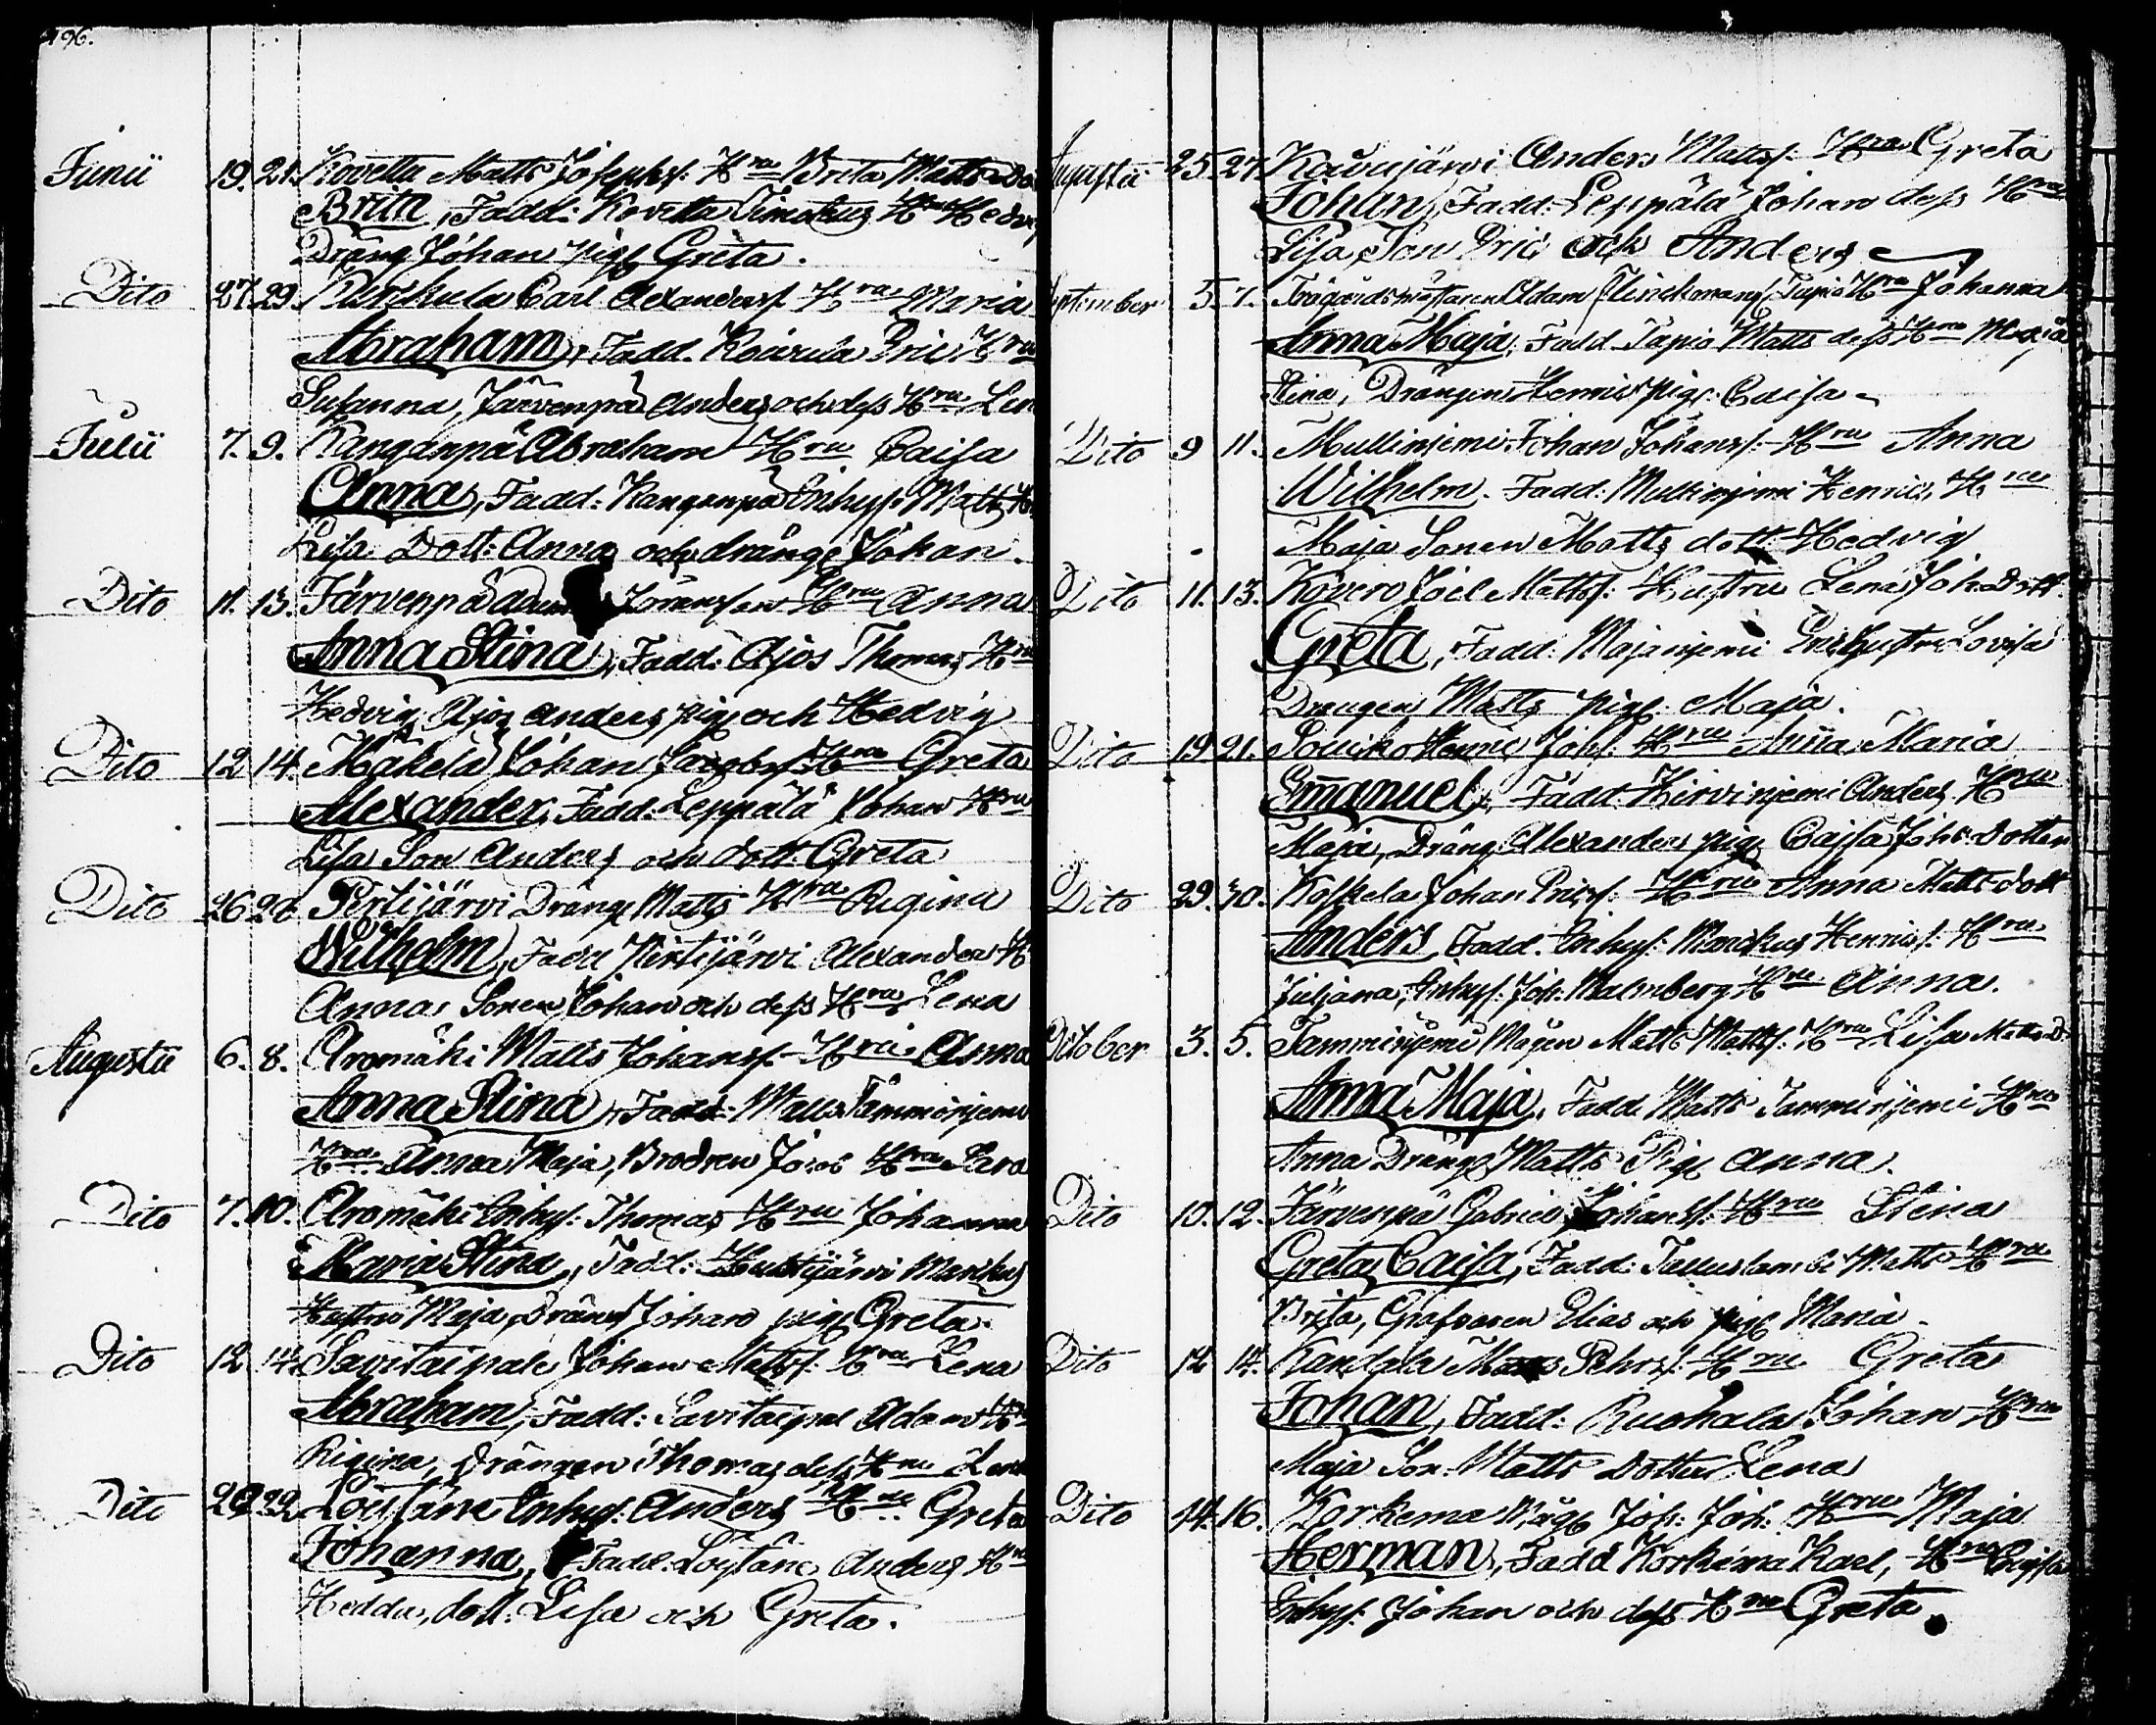 196.
Junii 19. 21. Kovella Matts Josephs: Hru Brita Matts Do
Brita, Fadd: Kovella Timoteus Hru Hedv
Dräng Johan pig. Greta.
Dito 27. 29. Kurikula Carl Alexanders: Hru Maria
Abraham, Fadd. Koivula Eric Hru
Susanna, Järvenpä Anders och dess Hru Len
Julii 7. 9. Kanganpä Abraham Hru Caisa
Anna, Fadd: Kanganpä Inhys: Matts
Lisa Dott: Anna och dränge Johan.
Dito 11. 13. Järvenpä Hru Anna
Anna Stina, Fadd: Ajos Thomas Hru
Hedvig, Ajos Anders pig och Hedvig
Dito 12 14. Mäkelä Johan Jacobs: Hru Greta
Alexander, Fadd: Leppälä Johan Hru
Lisa Son Anders och dott. Greta
Dito 26 28 Pirtijärvi Dräng Matts Hru Regina
Wilhelm, Fadd Pirtijärvi Alexander H
Anna, Sonen Johan och dess Hru Lena
Augusti 6. 8. Aromäki Matts Johans: Hru Anna
Anna Stina, Fadd: Matts Tamminjemi
Hru Anna Maja, Brodren Hru Sara
Dito 7. 10. Aromäki Inhys: Thomas Hru Johanna
Maria Stina, Fadd: Markus
Hustru Maja, Dräng Johan pig Greta.
Dito 12 14. Savitaipale Johan Matts: Hru Lena
Abraham, Fadd: Savitaipal Adam
Regina, Drängen Thomas dess Hru Lena
Dito 22 Löytäne Inhys: Anders Hru Greta
Johanna, Fadd. Löytäne Anders Hru
Hedda, dott: Lisa och Greta.
Augusti 25. 27. Koivujärvi Anders Matts: Hru Greta
Johan, Fadd: Leppälä Johan dess Hru
Lisa, Son Eric och Anders
September 5. 7. Trägårdsmästaren Adam Flinckman Tapio Hru Johanna
Anna Maja, Fadd. Tapio Matts dess Hru Maja
Stina, Drängen Henric pig: Caisa
Dito 9 11. Mullinjemi Johan Johans: Hru Anna
Wilhelm. Fadd: Mullinjemi Henric, Hru
Maja Sonen Matts dott: Hedvig
Dito 11. 13. Kovero Joel Matts: Hustru Lena Joh: Dott.
Greta, Fadd: Majanjemi Eric Hustru Lovisa
Drengen Matts pig: Maja.
Dito 19 21. Souiko Henric Johs: Hru Anna Maria
Emanuel, Fadd. Hirvinjemi Anders Hru
Maja, Dräng Alexander pig Caisa Johs: Dotter
Dito 29. 30. Koskela Johan Erics: Hru Anna Matts dott
Anders, Fadd. Inhys: Markus Henrics: Hru
Juliana, Inhys: Joh: Malmberg Hru Anna.
October 3. 5. Tamminjemi Mågen Matts Matts: Hru Lisa Matts D:
Anna Maja, Fadd Matts Tamminjemi Hru
Anna Dräng Matts Pig Anna.
Dito 10. 12. Järvenpä Gabriel Johans: Hru Stina
Greta Caisa, Fadd: Talluslambi Matts Hru
Brita, Grafvaren Elias och pig Maria.
Dito 12 14. Kandala Matts Pehrs: Hru Greta
Johan, Fadd: Ruohala Johan Hru
Maja Son Matts Dotter Lena
Dito 14. 16. Korkema Mågs Joh: Joh: Hru Maja
Herman, Fadd Korkema Karl, Hru Caisa
Inhys: Johan och dess Hru Greta.